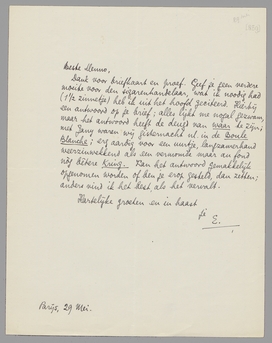 Beste Menno,
Dank voor briefkaart en proef. Geef je geen verdere
moeite voor den sigarenhandelaar, wat ik noodig had
(1½ zinnetje) heb ik uit het hoofd geciteerd. Hierbij
een antwoord op je brief; alles lijkt me nogal gezwam,
maar het antwoord heeft de deugd van waar te zijn;
met Jany waren wij gisternacht nl in de Boule
Blanche; erg aardig voor een uurtje, langzamerhand
weerzinwekkend als een vermomde maar au fond
nòg dètere Kring. Kan het antwoord gemakkelijk
opgenomen worden of ben je erop gesteld, dan zetten;
anders vind ik het best, als het vervalt.
Hartelijke groeten en in haast
je
E.
Parijs, 29 Mei.